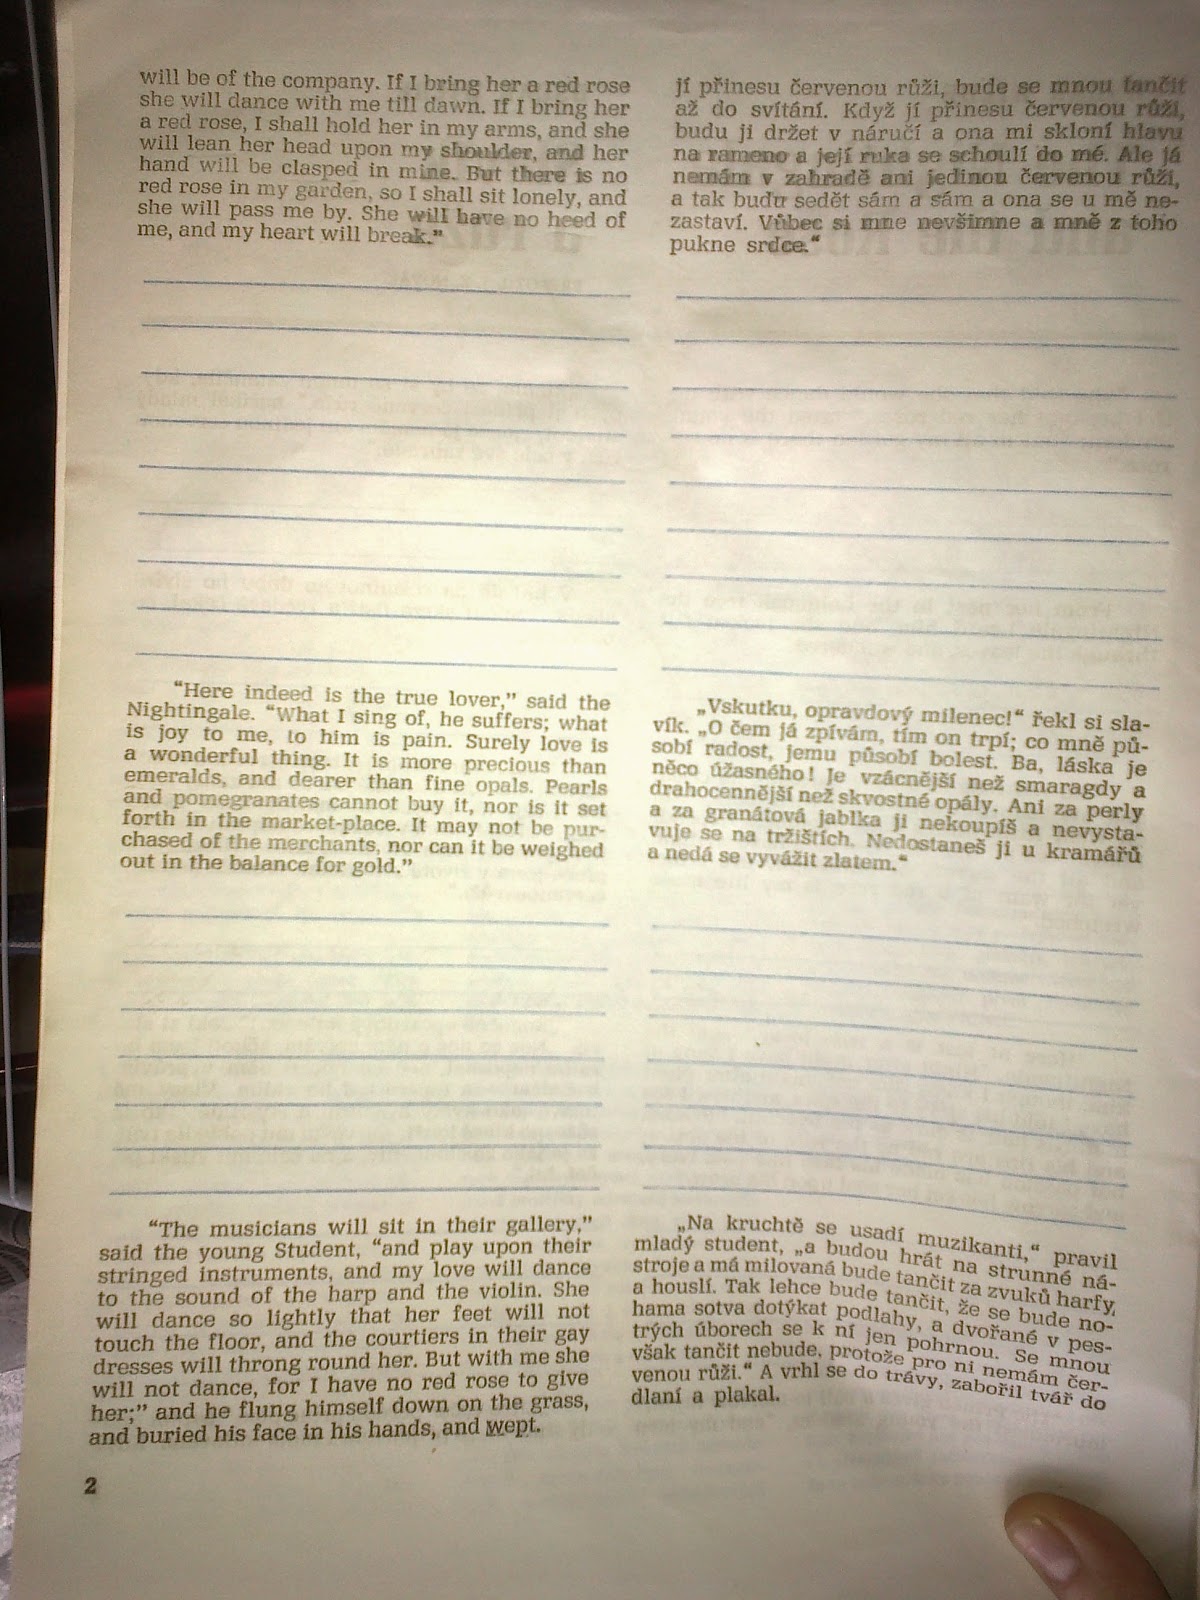 will be of the company. If I bring her a red rose
she will dance with me till dawn. If I bring her
a red rose, I shall hold her in my arms, and she
will lean her head upon my shoulder, and her
hand will be clasped in mine. But there is no
red rose in my garden, so I shall sit lonely, and
she will pass me by. She will have no heed of
me, and my heart will break.”
“Here indeed is the true lover,” said the
Nightingale. “What I sing of, he suffers; what
is joy to me, to him is pain. Surely love is
a wonderful thing. It is more precious than
emeralds, and dearer than fine opals. Pearls
and pomegranates cannot buy it, nor is it set
forth in the market-place. It may not be pur-
chased of the merchants, nor can it be weighed
out in the balance for gold.”
“The musicians will sit in their gallery,”
said the young Student, “and play upon their
stringed instruments, and my love will dance
to the sound of the harp and the violin. She
will dance so lightly that her feet will not
touch the floor, and the courtiers in their gay
dresses will throng round her. But with me she
will not dance, for I have no red rose to give
her;” and he flung himself down on the grass,
and buried his face in his hands, and wept.
jí přinesu červenou růži, bude se mnou tančit
až do svítání. Když jí přinesu červenou růži,
budu ji držet v náručí a ona mi skloní hlavu
na rameno a její ruka se schoulí do mé. Ale já
nemám v zahradě ani jedinou červenou růži,
a tak budu sedět sám a sám a ona se u mě ne-
zastaví. Vůbec si mne nevšimne a mně z toho
pukne srdce.“
„Vskutku, opravdový milenec!“ řekl si sla-
vík. „O čem já zpívám, tím on trpí; co mně pů-
sobí radost, jemu působí bolest. Ba, láska je
něco úžasného! Je vzácnější než smaragdy a
drahocennější než skvostné opály. Ani za perly
a za granátová jablka ji nekoupíš a nevysta-
vuje se na tržištích. Nedostaneš ji u kramářů
a nedá se vyvážit zlatem.“
„Na kruchtě se usadí muzikanti,“ pravil
mladý student, „a budou hrát na strunné ná-
stroje a má milovaná bude tančit za zvuků harfy
a houslí. Tak lehce bude tančit, že se bude no-
hama sotva dotýkat podlahy, a dvořané v pes-
trých úborech se k ní jen pohrnou. Se mnou
však tančit nebude, protože pro ni nemám čer-
venou růži.“ A vrhl se do trávy, zabořil tvář do
dlaní a plakal.
2